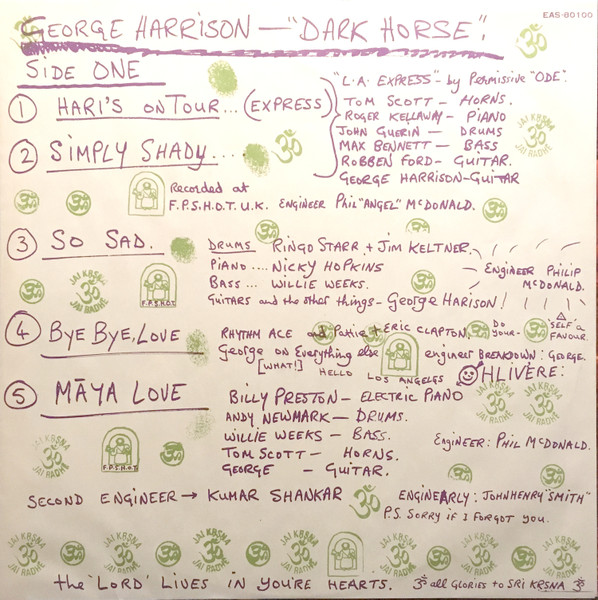 EAS-80100
GEORGE HARRISON — "DARK HORSE".
SIDE ONE
"L.A. EXPRESS" - by Permissive "ODE".
① HARI'S ON TOUR... (EXPRESS)
TOM SCOTT - HORNS.
ROGER KELLAWAY - PIANO
JOHN GUERIN — DRUMS
② SIMPLY SHADY....
MAX BENNETT - BASS
ROBBEN FORD - GUITAR.
GEORGE HARRISON - GUITAR
JAI KRSNA
ॐ
JAI RADHE
Recorded at
F.P.S.H.O.T. U.K. ENGINEER PHIL "ANGEL" McDONALD.
③ SO SAD.
DRUMS RINGO STARR + JIM KELTNER.
PIANO .... NICKY HOPKINS
BASS ... WILLIE WEEKS.
GUITARS and the other things - GEORGE HARISON!
ENGINEER PHILIP
McDONALD.
JAI KRSNA
ॐ
JAI RADHE
F.P.S.H.O.T.
④ BYE BYE, LOVE
RHYTHM ACE and Pattie + ERIC CLAPTON.
DO YOUR- 'SELF' A FAVOUR.
George on Everything else engineer BREAKDOWN: GEORGE.
[WHAT!] HELLO LOS ANGELES
OHLIVERE:
⑤ MĀYA LOVE
BILLY PRESTON - ELECTRIC PIANO
ANDY NEWMARK — DRUMS.
WILLIE WEEKS - BASS.
TOM SCOTT - HORNS.
GEORGE - GUITAR.
ENGINEER: PHIL McDONALD.
JAI KRSNA
ॐ
JAI RADHE
F.P.S.H.O.T.
SECOND ENGINEER → KUMAR SHANKAR
ENGINEARLY: JOHNHENRY "SMITH"
P.S. SORRY IF I FORGOT YOU.
JAI KRSNA
ॐ
JAI RADHE
the 'LORD' LIVES IN YOU'RE HEARTS. ॐ all GLORIES to SRI KRSNA ॐ